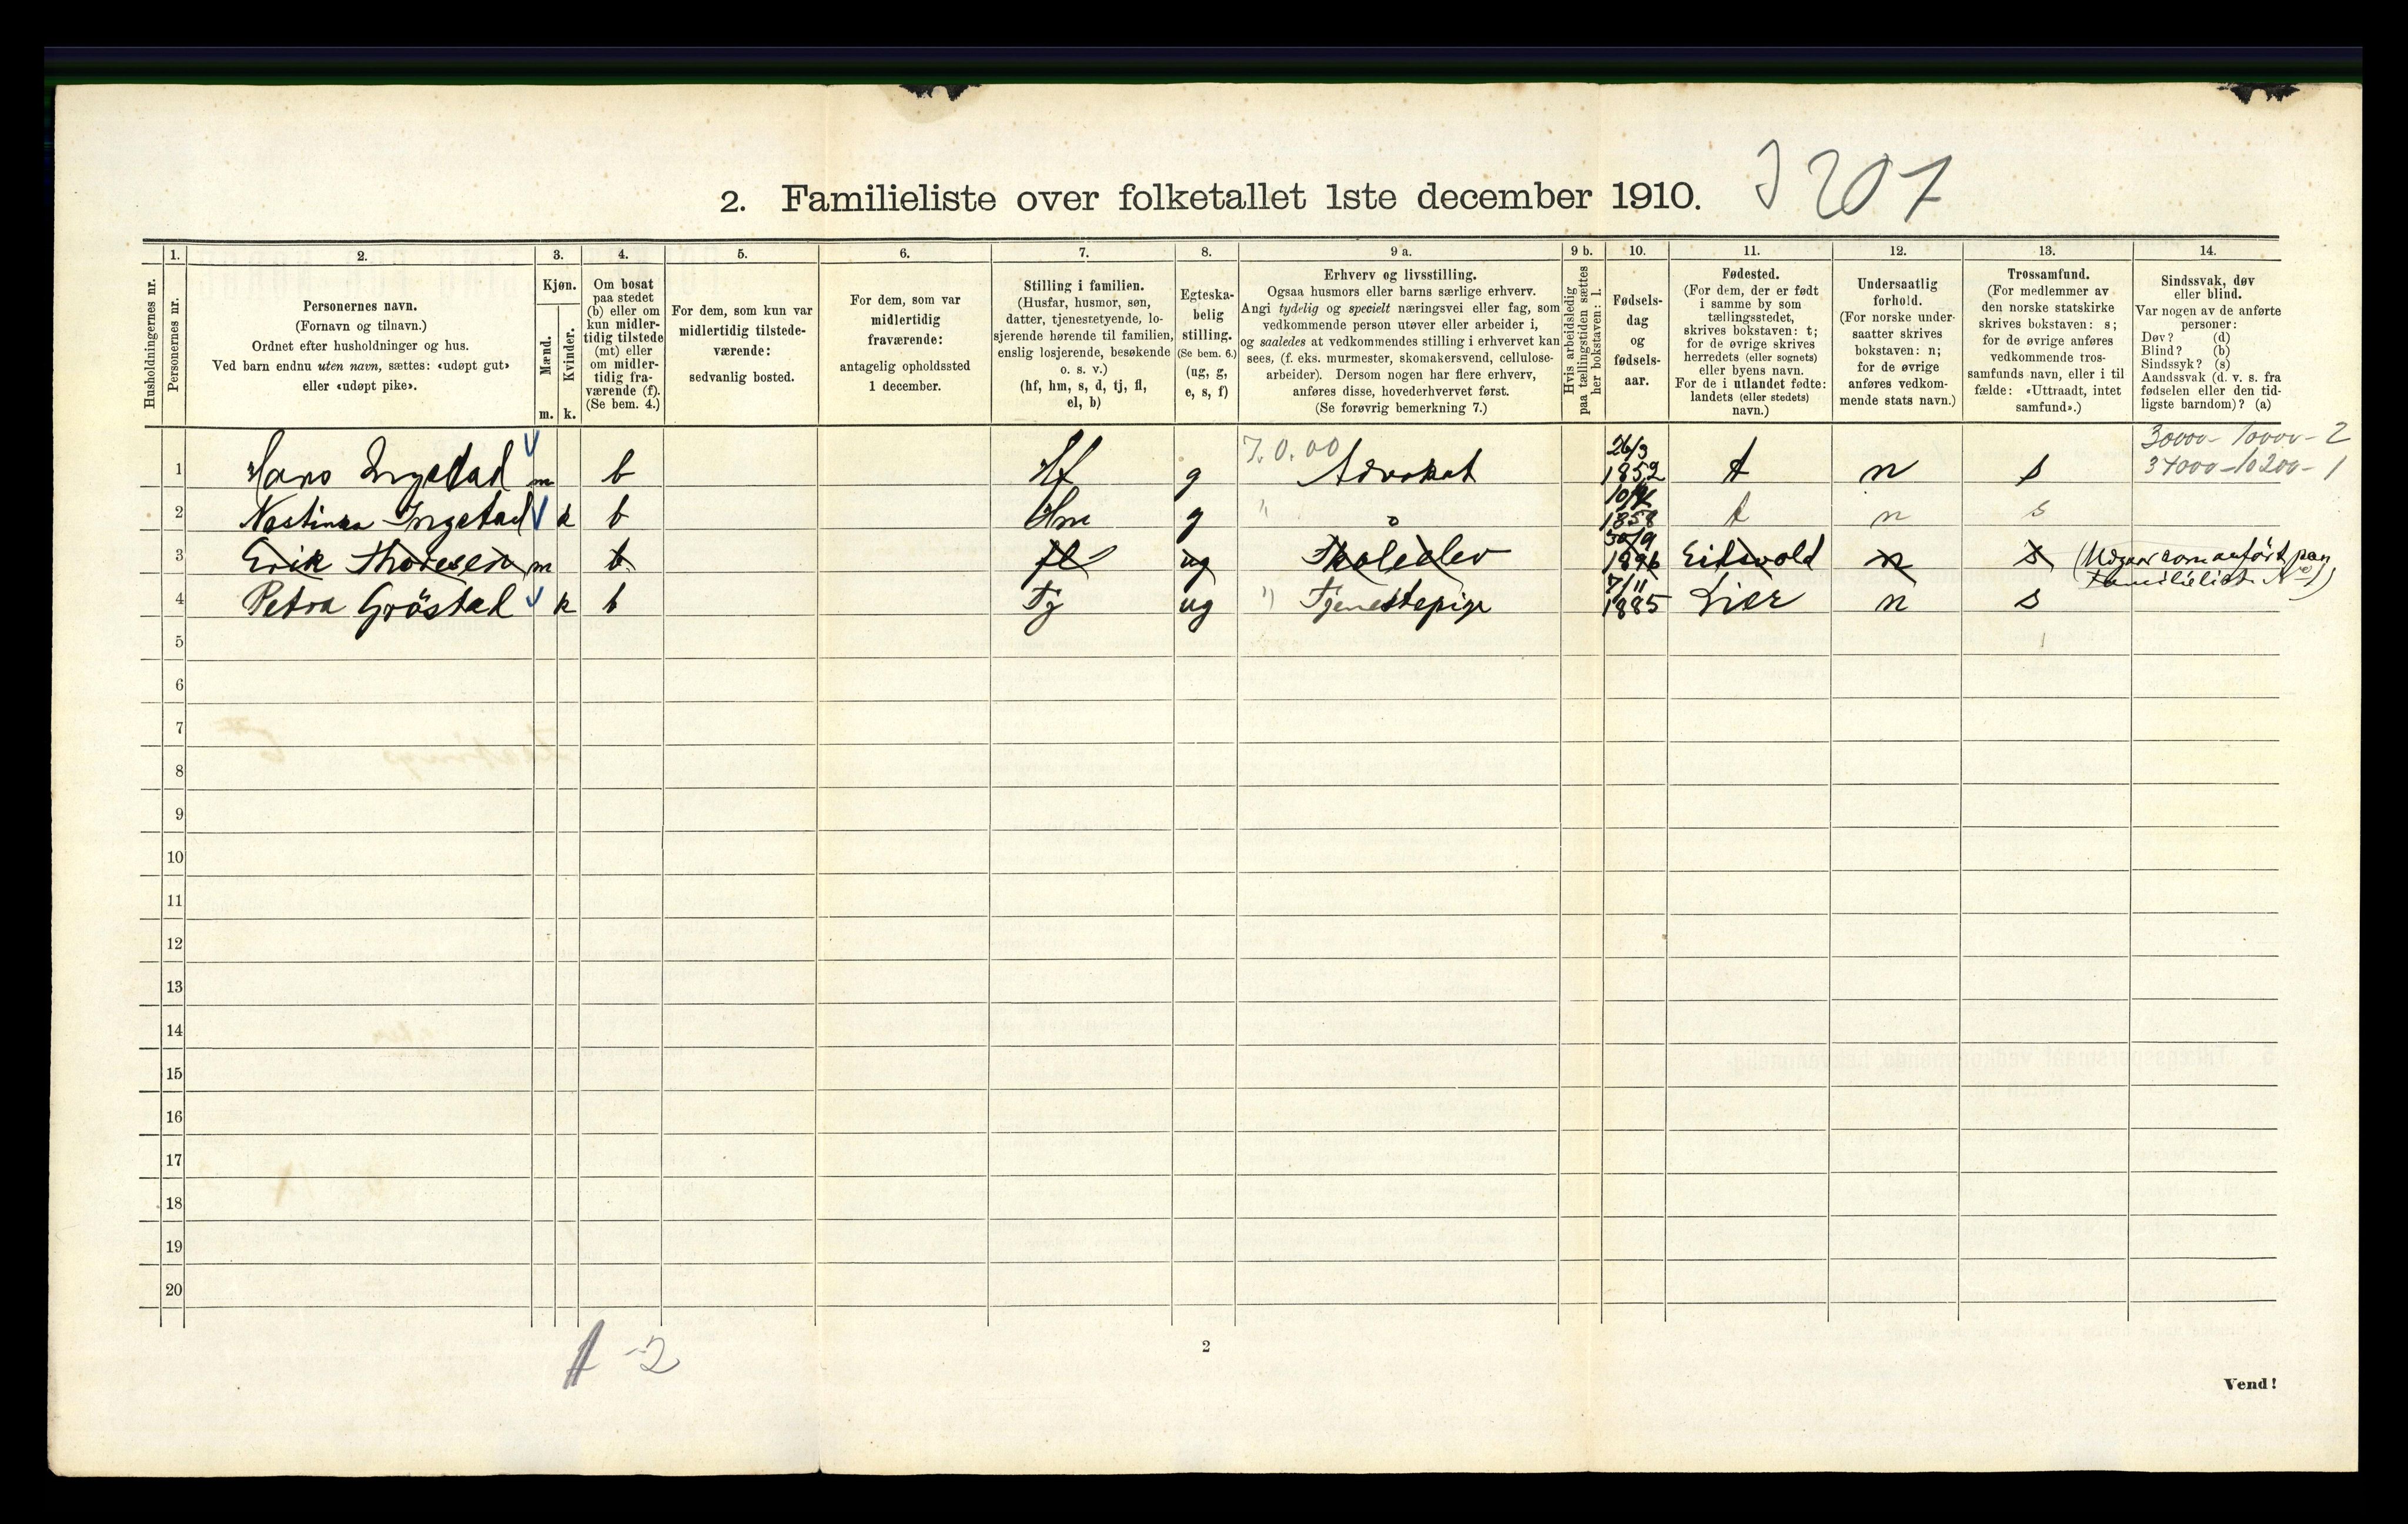 2. Familieliste over folketallet 1ste december 1910. J 207
Husholdningernes nr.
1.
Personernes nr.
2.
Personernes navn.
(Fornavn og tilnavn.)
Ordnet efter husholdninger og hus.
Ved barn endnu uten navn, sættes: «udøpt gut»
eller «udøpt pike».
3.
Kjøn.
Mænd.
Kvinder.
m. k.
4.
Om bosat
paa stedet
(b) eller om
kun midler-
tidig tilstede
(mt) eller
om midler-
tidig fra-
værende (f).
(Se bem. 4.)
5.
For dem, som kun var
midlertidig tilstede-
værende:
sedvanlig bosted.
6.
For dem, som var
midlertidig
fraværende:
antagelig opholdssted
1 december.
7.
Stilling i familien.
(Husfar, husmor, søn,
datter, tjenestetyende, lo-
sjerende hørende til familien,
enslig losjerende, besøkende
o. s. v.)
(hf, hm, s, d, tj, fl,
el, b)
8.
Egteska-
belig
stilling.
(Se bem. 6.)
(ug, g,
e, s, f)
9 a.
Erhverv og livsstilling.
Ogsaa husmors eller barns særlige erhverv.
Angi tydelig og specielt næringsvei eller fag, som
vedkommende person utøver eller arbeider i,
og saaledes at vedkommendes stilling i erhvervet kan
sees, (f. eks. murmester, skomakersvend, cellulose-
arbeider). Dersom nogen har flere erhverv,
anføres disse, hovederhvervet først.
(Se forøvrig bemerkning 7.)
9 b.
Hvis arbeidsledig
paa tællingstiden sættes
her bokstaven: l.
10.
Fødsels-
dag
og
fødsels-
aar.
11.
Fødested.
(For dem, der er født
i samme by som
tællingsstedet,
skrives bokstaven: t;
for de øvrige skrives
herredets (eller sognets)
eller byens navn.
For de i utlandet fødte:
landets (eller stedets)
navn.)
12.
Undersaatlig
forhold.
(For norske under-
saatter skrives
bokstaven: n;
for de øvrige
anføres vedkom-
mende stats navn.)
13.
Trossamfund.
(For medlemmer av
den norske statskirke
skrives bokstaven: s;
for de øvrige anføres
vedkommende tros-
samfunds navn, eller i til
fælde: «Uttraadt, intet
samfund».)
14.
Sindssvak, døv
eller blind.
Var nogen av de anførte
personer:
Døv? (d)
Blind? (b)
Sindssyk? (s)
Aandssvak (d. v. s. fra
fødselen eller den tid-
ligste barndom)? (a)
7.0.00 26/3 30000 - 10000 - 2
1 Hans Ingstad m b Hf g Advokat 1852 t n s 34000 - 10200 - 1
2 Nastinka Ingstad k b Hm g " 1858 t n s
30/9
3 Erik Thoresen m b fl ug Skoleelev 1896 Eidsvold n s (Utgaar som anført paa
7/11 Familieliste No 1)
4 Petra Gröstad k b Tj ug " Tjenestepige 1885 Lier n s
5
6
7
8
9
10
11
12
13
14
15
16
17
18
19
20
A - 2
2
Vend!